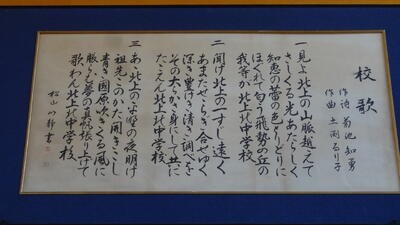 校歌
作詩 菊池知勇
作曲 土渕るり子
一 見よ北上の山脈越えて
さしくる光あたらしく
知恵の蕾の色とりどりに
ほぐれて匂う飛勢の丘の
我等が北上北中学校
二 聞け北上の一すじ遠く
あまたせゝらぎ合せゆく
深き豊けき清き調べを
その大き身にして共に
たゝえん北上北中学校
三 あゝ北上の安堵の夜明け
祖先こゝのかた開きこし
青き国原吹きくる風に
脹らむ夢の真帆張り上げて
歌わん北上北中学校
松山 書